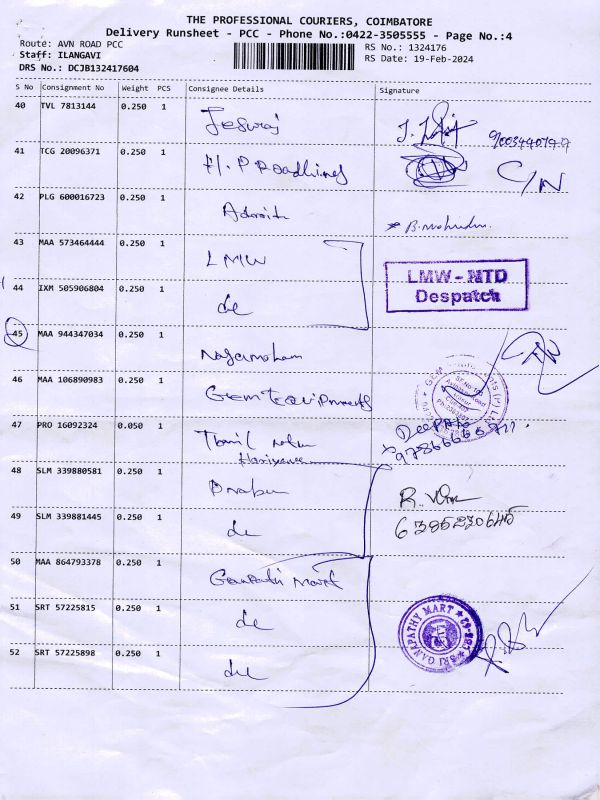 THE PROFESSIONAL COURIERS, COIMBATORE
Delivery Runsheet - PCC - Phone No.:0422-3505555 - Page No.:4
Route: AVN ROAD PCC RS No.: 1324176
Staff: ILANGAVI RS Date: 19-Feb-2024
DRS No.: DCJB132417604
S No Consignment No Weight PCS Consignee Details Signature
40 TVL 7813144 0.250 1 Jesuraj
41 TCG 20096371 0.250 1 C/N
42 PLG 600016723 0.250 1
43 MAA 573464444 0.250 1 LMW
LMW - NTD
Despatch
44 IXM 505906804 0.250 1 do
45 MAA 944347034 0.250 1
46 MAA 106890983 0.250 1 Gem Equipments
47 PRO 16092324 0.050 1 Tamil DEEPAK
48 SLM 339880581 0.250 1 Prabu
49 SLM 339881445 0.250 1 do
50 MAA 864793378 0.250 1 Ganpathi Mart
51 SRT 57225815 0.250 1 do
SRI GANAPATHY MART
52 SRT 57225898 0.250 1 do